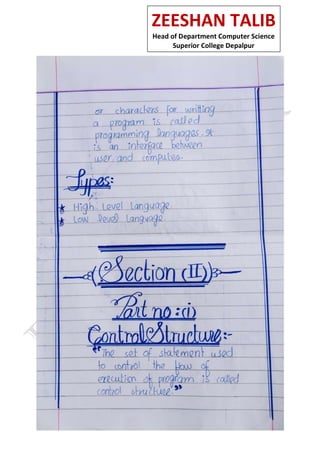 ZEESHAN TALIB
Head of Department Computer Science
Superior College Depalpur
or characters for writing
a program is called
programming languages. It
is an interface between
user and computer.
Types:
* High Level Language
* Low level Language
Section (II)
Part no:(i)
Control Structure:-
"The set of statement used
to control the flow of
execution of program is called
control structure."